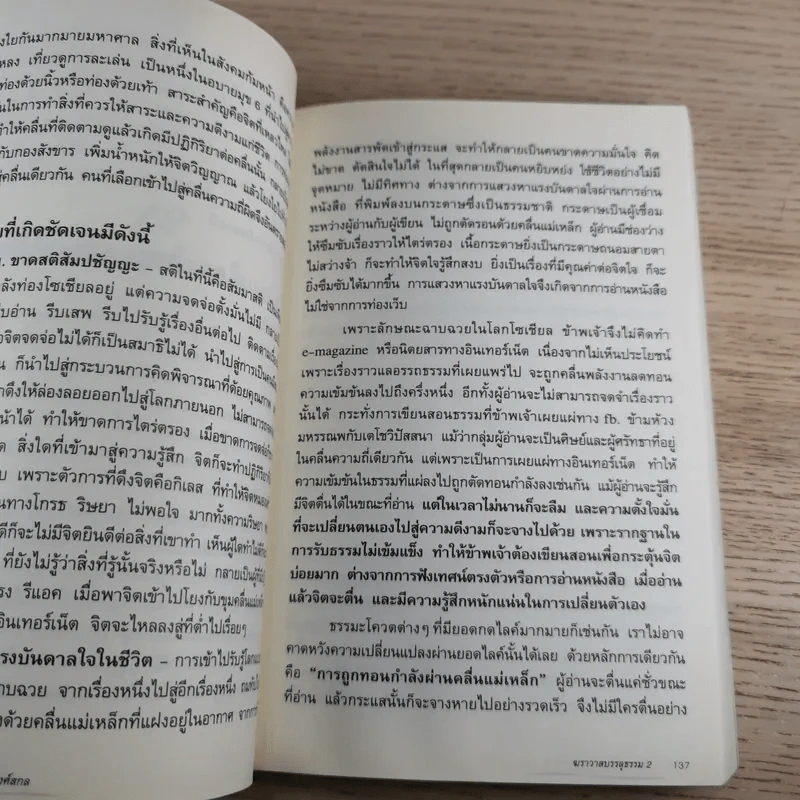 งใยกันมากมายมหาศาล สิ่งที่เห็นในสังคมก้มหน้า
หลง เที่ยวดูการละเล่น เป็นหนึ่งในอบายมุข 6 ที่นำไป
ท่องด้วยนิ้วหรือท่องด้วยเท้า สาระสำคัญคือจิตที่
นในการทำสิ่งที่ควรให้สาระและความดีงามแก่ชีวิต
ทำให้คลื่นที่ติดตามดูแล้วเกิดมีปฏิกิริยาต่อคลื่นนั้น
กับกองสังขาร เพิ่มน้ำหนักให้จิตวิญญาณ แล้วโยง
สู่คลื่นเดียวกัน คนที่เลือกเข้าไปสู่คลื่นความถี่ผิดจึง
ที่เกิดชัดเจนมีดังนี้
. ขาดสติสัมปชัญญะ – สติในที่นี้คือสัมมาสติ
ลังท่องโซเชียลอยู่ แต่ความจดจ่อตั้งมั่นไม่มี
บอ่าน รีบเสพ รีบไปรับรู้เรื่องอื่นต่อไป
จิตจดจ่อไม่ได้ก็เป็นสมาธิไม่ได้ นำไปสู่การเป็นคน
น ก็นำไปสู่กระบวนการคิดพิจารณาที่ด้อยคุณภาพ
าดึงให้ล่องลอยออกไปสู่โลกภายนอก ไม่สามารถ
น้าได้ ทำให้ขาดการไตร่ตรอง เมื่อขาดการจดจ่อ
ด สิ่งใดที่เข้ามาสู่ความรู้สึก จิตก็จะทำปฏิกิริยา
บ เพราะตัวการที่ดึงจิตคือกิเลส ที่ทำให้จิตหมอง
นทางโกรธ ริษยา ไม่พอใจ มากทั้งความวิษยา
ดีก็จะไม่มีจิตยินดีต่อสิ่งที่เขาทำ เห็นผู้ใดทำไม่ดี
ที่ยังไม่รู้ว่าสิ่งที่รู้นั้นจริงหรือไม่ กลายเป็นผู้
รง รีแอค เมื่อพาจิตเข้าไปโยงกับขุมคลื่นแม่เหล็ก
อินเทอร์เน็ต จิตจะไหลลงสู่ที่ต่ำไปเรื่อยๆ
รงบันดาลใจในชีวิต – การเข้าไปรับรู้โลก
าบฉวย จากเรื่องหนึ่งไปสู่อีกเรื่องหนึ่ง
งด้วยคลื่นแม่เหล็กที่แฝงอยู่ในอากาศ จากการ
งศ์สกล
พลังงานสารพัดเข้าสู่กระแส จะทำให้กลายเป็นคนขาดความมั่นใจ คิด
ไม่ขาด ตัดสินใจไม่ได้ ในที่สุดกลายเป็นคนหยิบหย่ง ใช้ชีวิตอย่างไม่มี
จุดหมาย ไม่มีทิศทาง ต่างจากการแสวงหาแรงบันดาลใจผ่านการอ่าน
หนังสือ ที่พิมพ์ลงบนกระดาษซึ่งเป็นธรรมชาติ กระดาษเป็นผู้เชื่อม
ระหว่างผู้อ่านกับผู้เขียน ไม่ถูกตัดรอนด้วยคลื่นแม่เหล็ก ผู้อ่านมีช่องว่าง
ให้ซึมซับเรื่องราวให้ไตร่ตรอง เนื้อกระดาษยิ่งเป็นกระดาษถนอมสายตา
ไม่สว่างจ้า ก็จะทำให้จิตใจรู้สึกสงบ ยิ่งเป็นเรื่องที่มีคุณค่าต่อจิตใจ ก็จะ
ยิ่งซึมซับได้มากขึ้น การแสวงหาแรงบันดาลใจจึงเกิดจากการอ่านหนังสือ
ไม่ใช่จากการท่องเว็บ
เพราะลักษณะฉาบฉวยในโลกโซเชียล ข้าพเจ้าจึงไม่คิดทำ
e-magazine หรือนิตยสารทางอินเทอร์เน็ต เนื่องจากไม่เห็นประโยชน์
เพราะเรื่องราวและอรรถธรรมที่เผยแพร่ไป จะถูกคลื่นพลังงานลดทอน
ความเข้มข้นลงไปถึงครึ่งหนึ่ง อีกทั้งผู้อ่านจะไม่สามารถจดจำเรื่องราว
นั้นได้ กระทั่งการเขียนสอนธรรมที่ข้าพเจ้าเผยแผ่ทาง fb. ข้ามห้วง
มหรรณพกับเตโชวิปัสสนา แม้ว่ากลุ่มผู้อ่านจะเป็นศิษย์และผู้ศรัทธาที่อยู่
ในคลื่นความถี่เดียวกัน แต่เพราะเป็นการเผยแผ่ทางอินเทอร์เน็ต ทำให้
ความเข้มข้นในธรรมที่แผ่ลงไปถูกตัดทอนกำลังลงเช่นกัน แม้ผู้อ่านจะรู้สึก
มีจิตตื่นได้ในขณะที่อ่าน แต่ในเวลาไม่นานก็จะลืม และความตั้งใจมั่น
ที่จะเปลี่ยนตนเองไปสู่ความดีงามก็จะจางไปด้วย เพราะรากฐานใน
การรับธรรมไม่เข้มแข็ง ทำให้ข้าพเจ้าต้องเขียนสอนเพื่อกระตุ้นจิต
บ่อยมาก ต่างจากการฟังเทศน์ตรงตัวหรือการอ่านหนังสือ เมื่ออ่าน
แล้วจิตจะตื่น และมีความรู้สึกหนักแน่นในการเปลี่ยนตัวเอง
ธรรมะโควตต่างๆ ที่มียอดกดไลค์มากมายก็เช่นกัน เราไม่อาจ
คาดหวังความเปลี่ยนแปลงผ่านยอดไลค์นั้นได้เลย ด้วยหลักการเดียวกัน
คือ “การถูกทอนกำลังผ่านคลื่นแม่เหล็ก” ผู้อ่านจะตื่นแค่ชั่วขณะ
ที่อ่าน แล้วกระแสนั้นก็จะจางหายไปอย่างรวดเร็ว จึงไม่มีใครตื่นอย่าง
ฆราวาสบรรลุธรรม 2 137